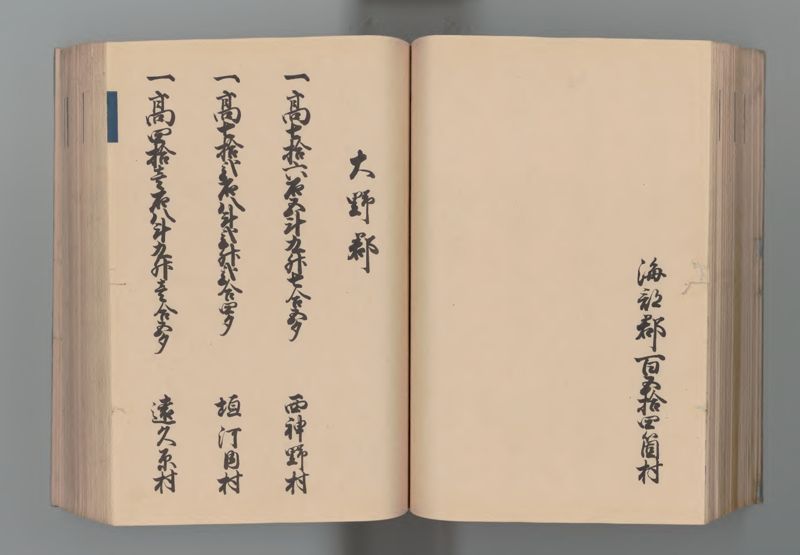 海部郡百五拾四箇村
大野郡
一高七拾六石五斗九升七合五夕
西神野村
一高七拾弐石八斗弐升弐合四夕
垣河内村
一高四拾壱石八斗九升壱合五夕
遠久原村